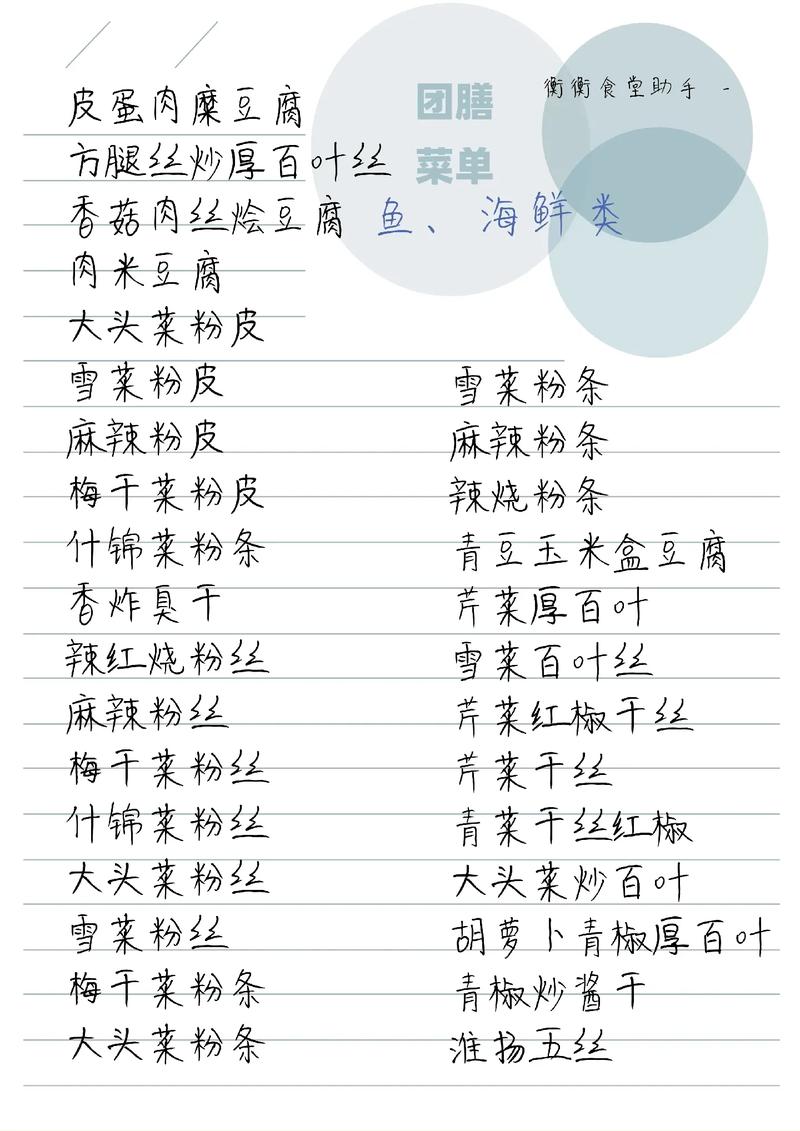 团膳
菜单
衡衡食堂助手 -
鱼、海鲜类
皮蛋肉糜豆腐
方腿丝炒厚百叶丝
香菇肉丝烩豆腐
肉米豆腐
大头菜粉皮
雪菜粉皮
麻辣粉皮
梅干菜粉皮
什锦菜粉条
香炸臭干
辣红烧粉丝
麻辣粉丝
梅干菜粉丝
什锦菜粉丝
大头菜粉丝
雪菜粉丝
梅干菜粉条
大头菜粉条
雪菜粉条
麻辣粉条
辣烧粉条
青豆玉米盒豆腐
芹菜厚百叶
雪菜百叶丝
芹菜红椒干丝
芹菜干丝
青菜干丝红椒
大头菜炒百叶
胡萝卜青椒厚百叶
青椒炒酱干
淮扬五丝